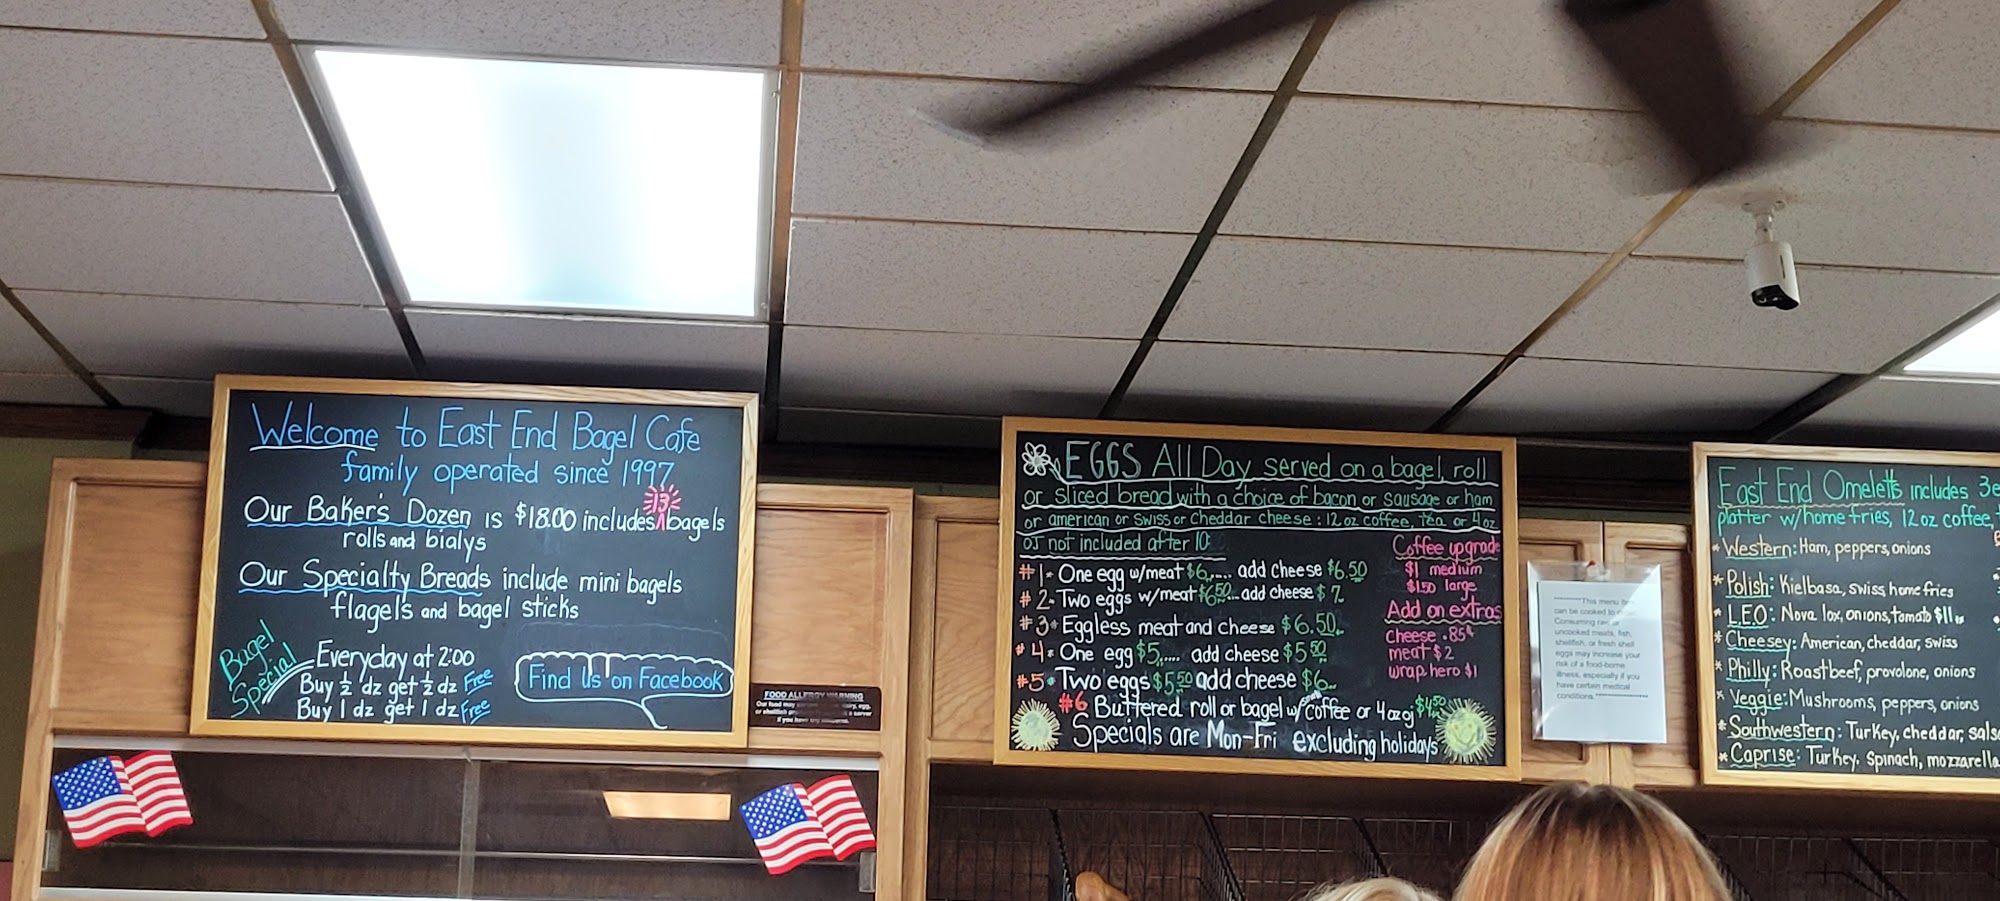 Welcome to East End Bagel Cafe
family operated since 1997
Our Baker's Dozen is $18.00 includes 13 bagels
rolls and bialys
Our Specialty Breads include mini bagels
flagels and bagel sticks
Bagel
Special
Everyday at 2:00
Buy ½ dz get ½ dz Free
Buy 1 dz get 1 dz Free
Find Us on Facebook
FOOD ALLERGY WARNING
Our food may
if you have any
EGGS All Day served on a bagel, roll
or sliced bread with a choice of bacon or sausage or ham
or american or swiss or cheddar cheese: 12 oz coffee, tea or 4 oz
oj not included after 10:
#1 One egg w/meat $6..... add cheese $6.50
#2 Two eggs w/meat $6.50... add cheese $7.
#3 Eggless meat and cheese $6.50.
#4 One egg $5..... add cheese $5.50
#5 Two eggs $5.50 add cheese $6..
#6 Buttered roll or bagel w/ small coffee or 4 oz oj $4.50
Specials are Mon-Fri excluding holidays
Coffee upgrade
$1 medium
$1.50 large
Add on extras
cheese .85¢
meat $2
wrap, hero $1
This menu
can be cooked to
Consuming
uncooked meats, fish,
shellfish, or fresh shell
eggs may increase your
risk of a food-borne
illness, especially if you
have certain medical
conditions.
East End Omeletts includes 3e
platter w/home fries, 12 oz coffee,
* Western: Ham, peppers, onions
* Polish: Kielbasa, swiss, home fries
* L.E.O: Nova lox, onions, tomato $11..
* Cheesey: American, cheddar, swiss
* Philly: Roast beef, provolone, onions
* Veggie: Mushrooms, peppers, onions
* Southwestern: Turkey, cheddar, sals
* Caprise: Turkey, spinach, mozzarella